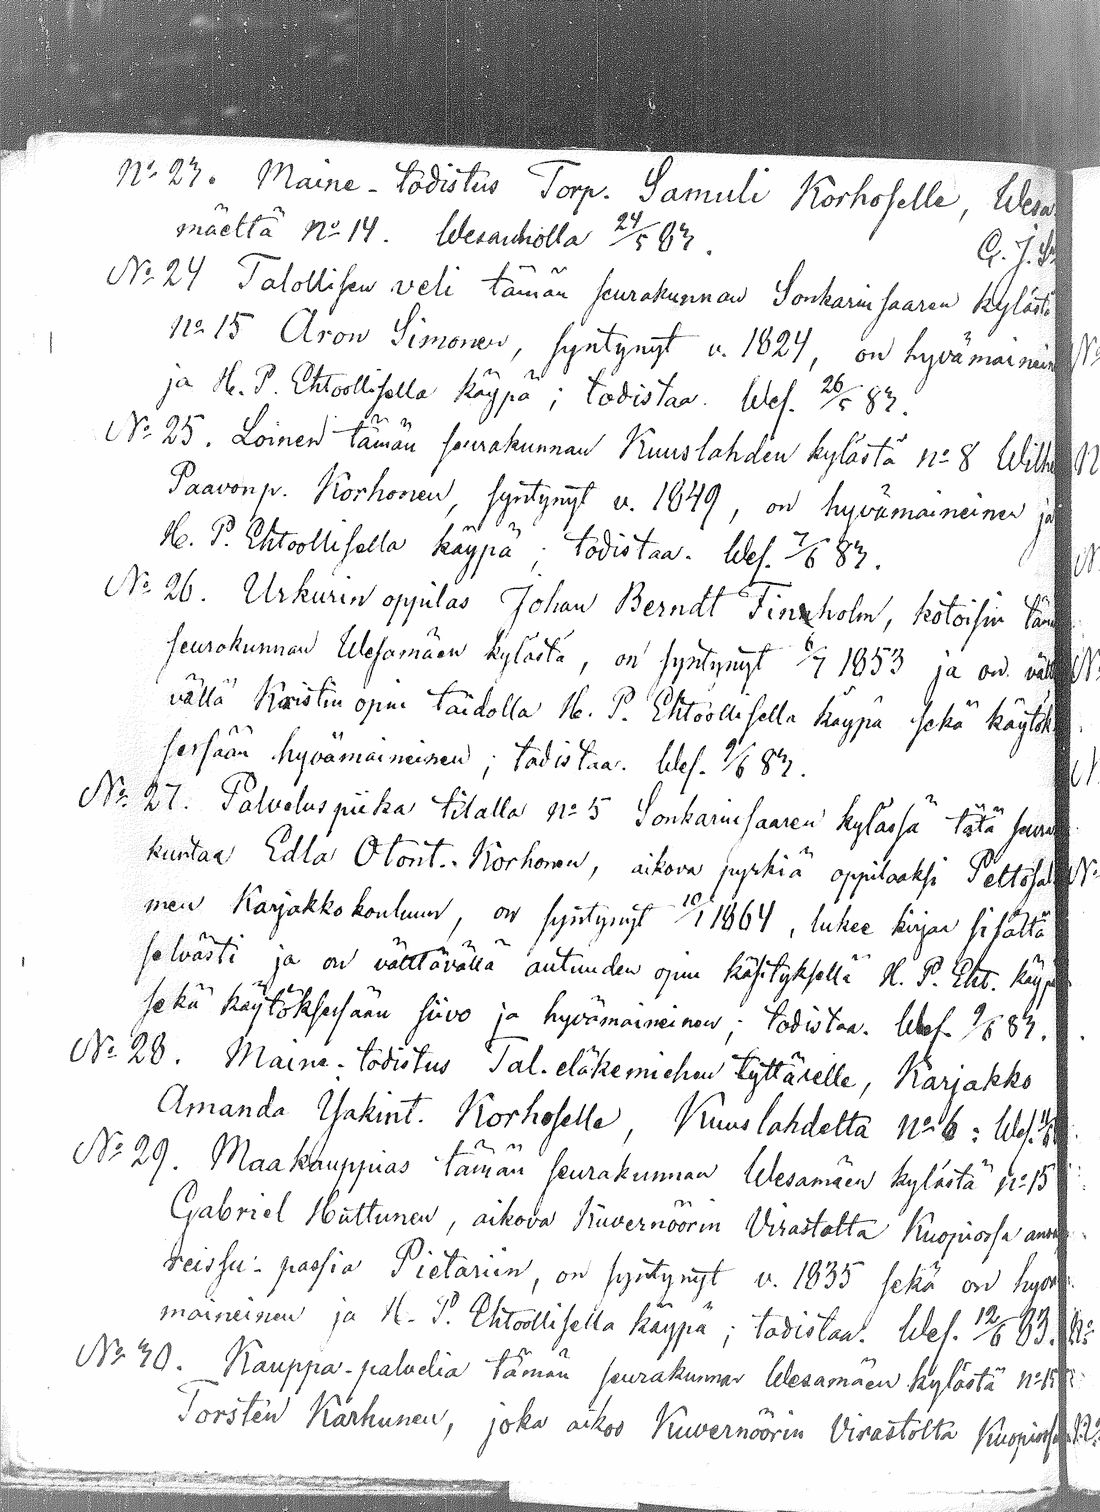 No 23. Maine-todistus Torp. Samuli Korhoselle, Wesa
mäeltä No 14. Wesannolla 24/5 83.
G. J.
No 24 Talollisen veli tämän seurakunnan Sonkarinsaaren kylästä
No 15 Aron Simonen, syntynyt v. 1824, on hyvämainein
ja H. P. Ehtoollisella käypä; todistaa. Wes. 26/5 83.
No 25. Loinen tämän seurakunnan Kuuslahden kylästä No 8 Wilhe
Paavonp. Korhonen, syntynyt v. 1849, on hyvämaineinen ja
H. P. Ehtoollisella käypä; todistaa. Wes. 7/6 83.
No 26. Urkurin oppilas Johan Berndt Finnholm, kotoisin täm
seurakunnan Wesamäen kylästä, on syntynyt 6/7 1853 ja on vält
vällä Kristin opin taidolla H. P. Ehtoollisella käypä sekä käytök
sessään hyvämaineinen; todistaa. Wes. 9/6 83.
No 27. Palveluspiika tilalla No 5 Sonkarinsaaren kylässä tätä seura
kuntaa Edla Otont. Korhonen, aikova pyrkiä oppilaaksi Peltosal
men Karjakkokouluun, on syntynyt 10/1 1864, lukee kirjan sisältä
selvästi ja on välttävällä autuuden opin käsityksellä H. P. Eht. käypä
sekä käytöksessään siivo ja hyvämaineinen; todistaa. Wes. 9/6 83.
No 28. Maine-todistus Tal. eläkemiehen tyttärelle, Karjakko
Amanda Yakint. Korhoselle, Kuuslahdelta No 6: Wes. 11/6
No 29. Maakauppias tämän seurakunnan Wesamäen kylästä No 15
Gabriel Huttunen, aikova Kuvernöörin Virastolta Kuopiossa
reissu-passia Pietariin, on syntynyt v. 1835 sekä on hyvä
maineinen ja H. P. Ehtoollisella käypä; todistaa. Wes. 12/6 83.
No 30. Kauppa-palvelia tämän seurakunnan Wesamäen kylästä No 15
Torsten Karhunen, joka aikoo Kuvernöörin Virastolta Kuopiossa